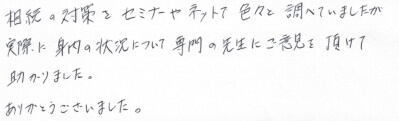 相続の対策をセミナーやネットで色々と調べていましたが
実際に身内の状況について専門の先生にご意見を頂けて
助かりました。
ありがとうございました。